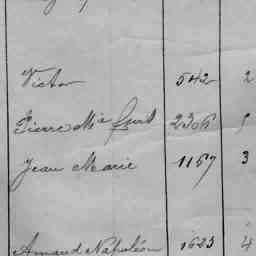 Victor 542 2
Pierre Mie 2306
Jean Marie 1167 3
Armand Napoléon 1623 4